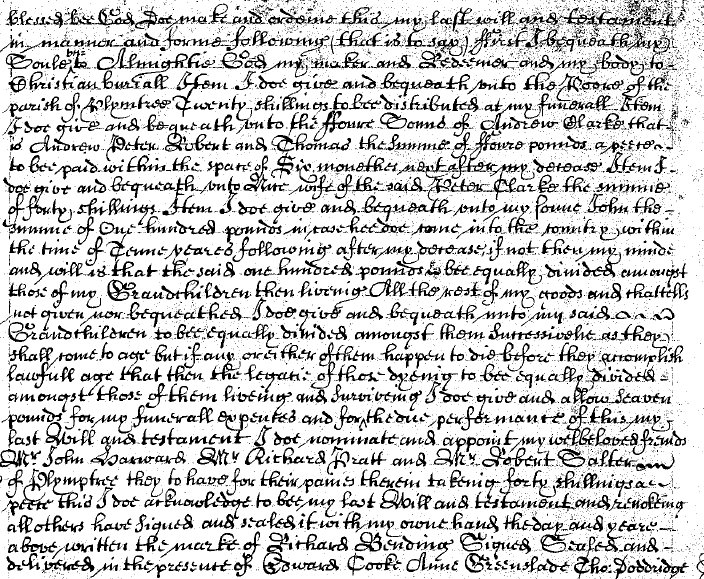 blessed bee God Doe make and ordeine this my last will and testament
in manner and forme following (that is to say) ffirst I bequeath my
Soule vnto Almightie God my maker and Redeemer and my body to
Christian buriall Item I doe give and bequeath vnto the Poore of the
parish of Plymtree Twenty shillings to bee distributed at my funerall Item
I doe give and bequeath vnto the ffoure Sonns of Andrew Clarke that
is Andrew Peter Robert and Thomas the summe of ffoure pounds a peece
to bee paid within the space of Six monethes next after my decease Item I
doe give and bequeath vnto wife of the said Peter Clarke the summe
of forty shillings Item I doe give and bequeath vnto my sonne John the
summe of One hundred pounds in case hee doe come into the country within
the time of Tenne yeares following after my decease, if not then my minde
and will is that the said one hundred pounds to bee equally divided amongst
those of my Grandchildren then liveing All the rest of my goods and chattells
not given nor bequeathed I doe give and bequeath vnto my said
Grandchildren to bee equally divided amongst them successivelie as they
shall come to age but if any or either of them happen to die before they accomplish
lawfull age that then the legacie of those dyeing to bee equally divided
amongst those of them liveing and surviveing I doe give and allow seaven
pounds for my funerall expences and for the due performance of this my
last Will and testament I doe nominate and appoint my welbeloved freinds
Mr John Harward Mr Richard Pratt and Mr Robert Salter
of Plymptree they to have for their paines therein takeing forty shillings a
peece this I doe acknowledge to bee my last Will and testament and revokeing
all others have Signed and sealed it with my owne hand the day and yeare
above written the marke of Richard Bending Signed Sealed and
delivered in the presence of Edward Cooke Anne Greenslade Tho: Doddridge